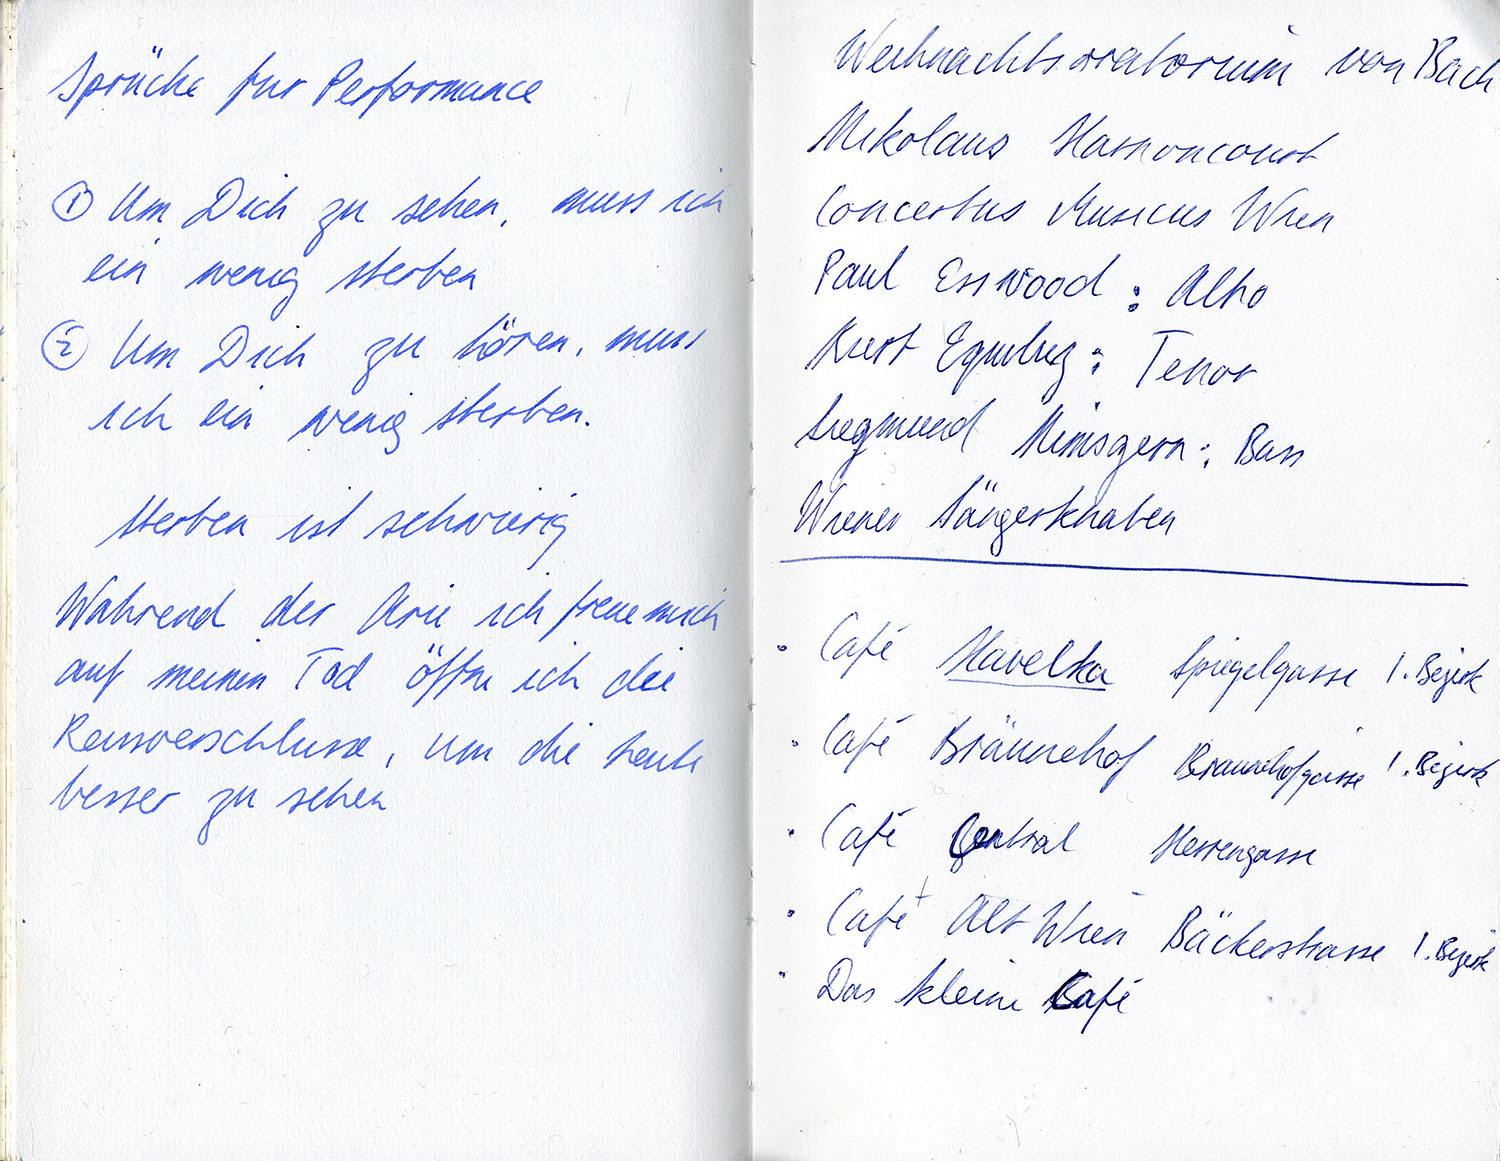 Sprüche für Performance
① Um Dich zu sehen, muss ich
ein wenig sterben
② Um Dich zu hören, muss
ich ein wenig sterben.
Sterben ist schwierig
Während der Arie ich freue mich
auf meinen Tod öffne ich die
Reissverschlüsse, um die Leute
besser zu sehen
Weihnachtsoratorium von Bach
Nikolaus Harnoncourt
Concentus Musicus Wien
Paul Esswood : Alto
Kurt Equiluz : Tenor
Siegmund Nimsgern : Bass
Wiener Sängerknaben
· Café Havelka Spiegelgasse 1. Bezirk
· Café Bräunehof Braunehofgasse 1. Bezirk
· Café Central Herrengasse
· Café Alt Wien Bäckerstrasse 1. Bezirk
· Das kleine Café